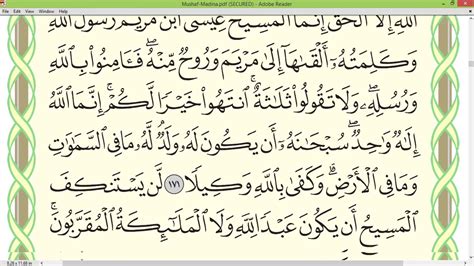 Mushaf-Madina.pdf (SECURED) - Adobe Reader
ٱللَّهِ إِلَّا ٱلْحَقَّ إِنَّمَا ٱلْمَسِيحُ عِيسَى ٱبْنُ مَرْيَمَ رَسُولُ ٱللَّهِ
وَكَلِمَتُهُۥٓ أَلْقَىٰهَآ إِلَىٰ مَرْيَمَ وَرُوحٌ مِّنْهُ ۖ فَـَٔامِنُوا۟ بِٱللَّهِ
وَرُسُلِهِۦ ۖ وَلَا تَقُولُوا۟ ثَلَٰثَةٌ ۚ ٱنتَهُوا۟ خَيْرًا لَّكُمْ ۚ إِنَّمَا ٱللَّهُ
إِلَٰهٌ وَٰحِدٌ ۖ سُبْحَٰنَهُۥٓ أَن يَكُونَ لَهُۥ وَلَدٌ ۘ لَّهُۥ مَا فِى ٱلسَّمَٰوَٰتِ
وَمَا فِى ٱلْأَرْضِ ۗ وَكَفَىٰ بِٱللَّهِ وَكِيلًا ١٧١ لَّن يَسْتَنكِفَ
ٱلْمَسِيحُ أَن يَكُونَ عَبْدًا لِّلَّهِ وَلَا ٱلْمَلَٰٓئِكَةُ ٱلْمُقَرَّبُونَ ۚ
8.26 x 11.69 in